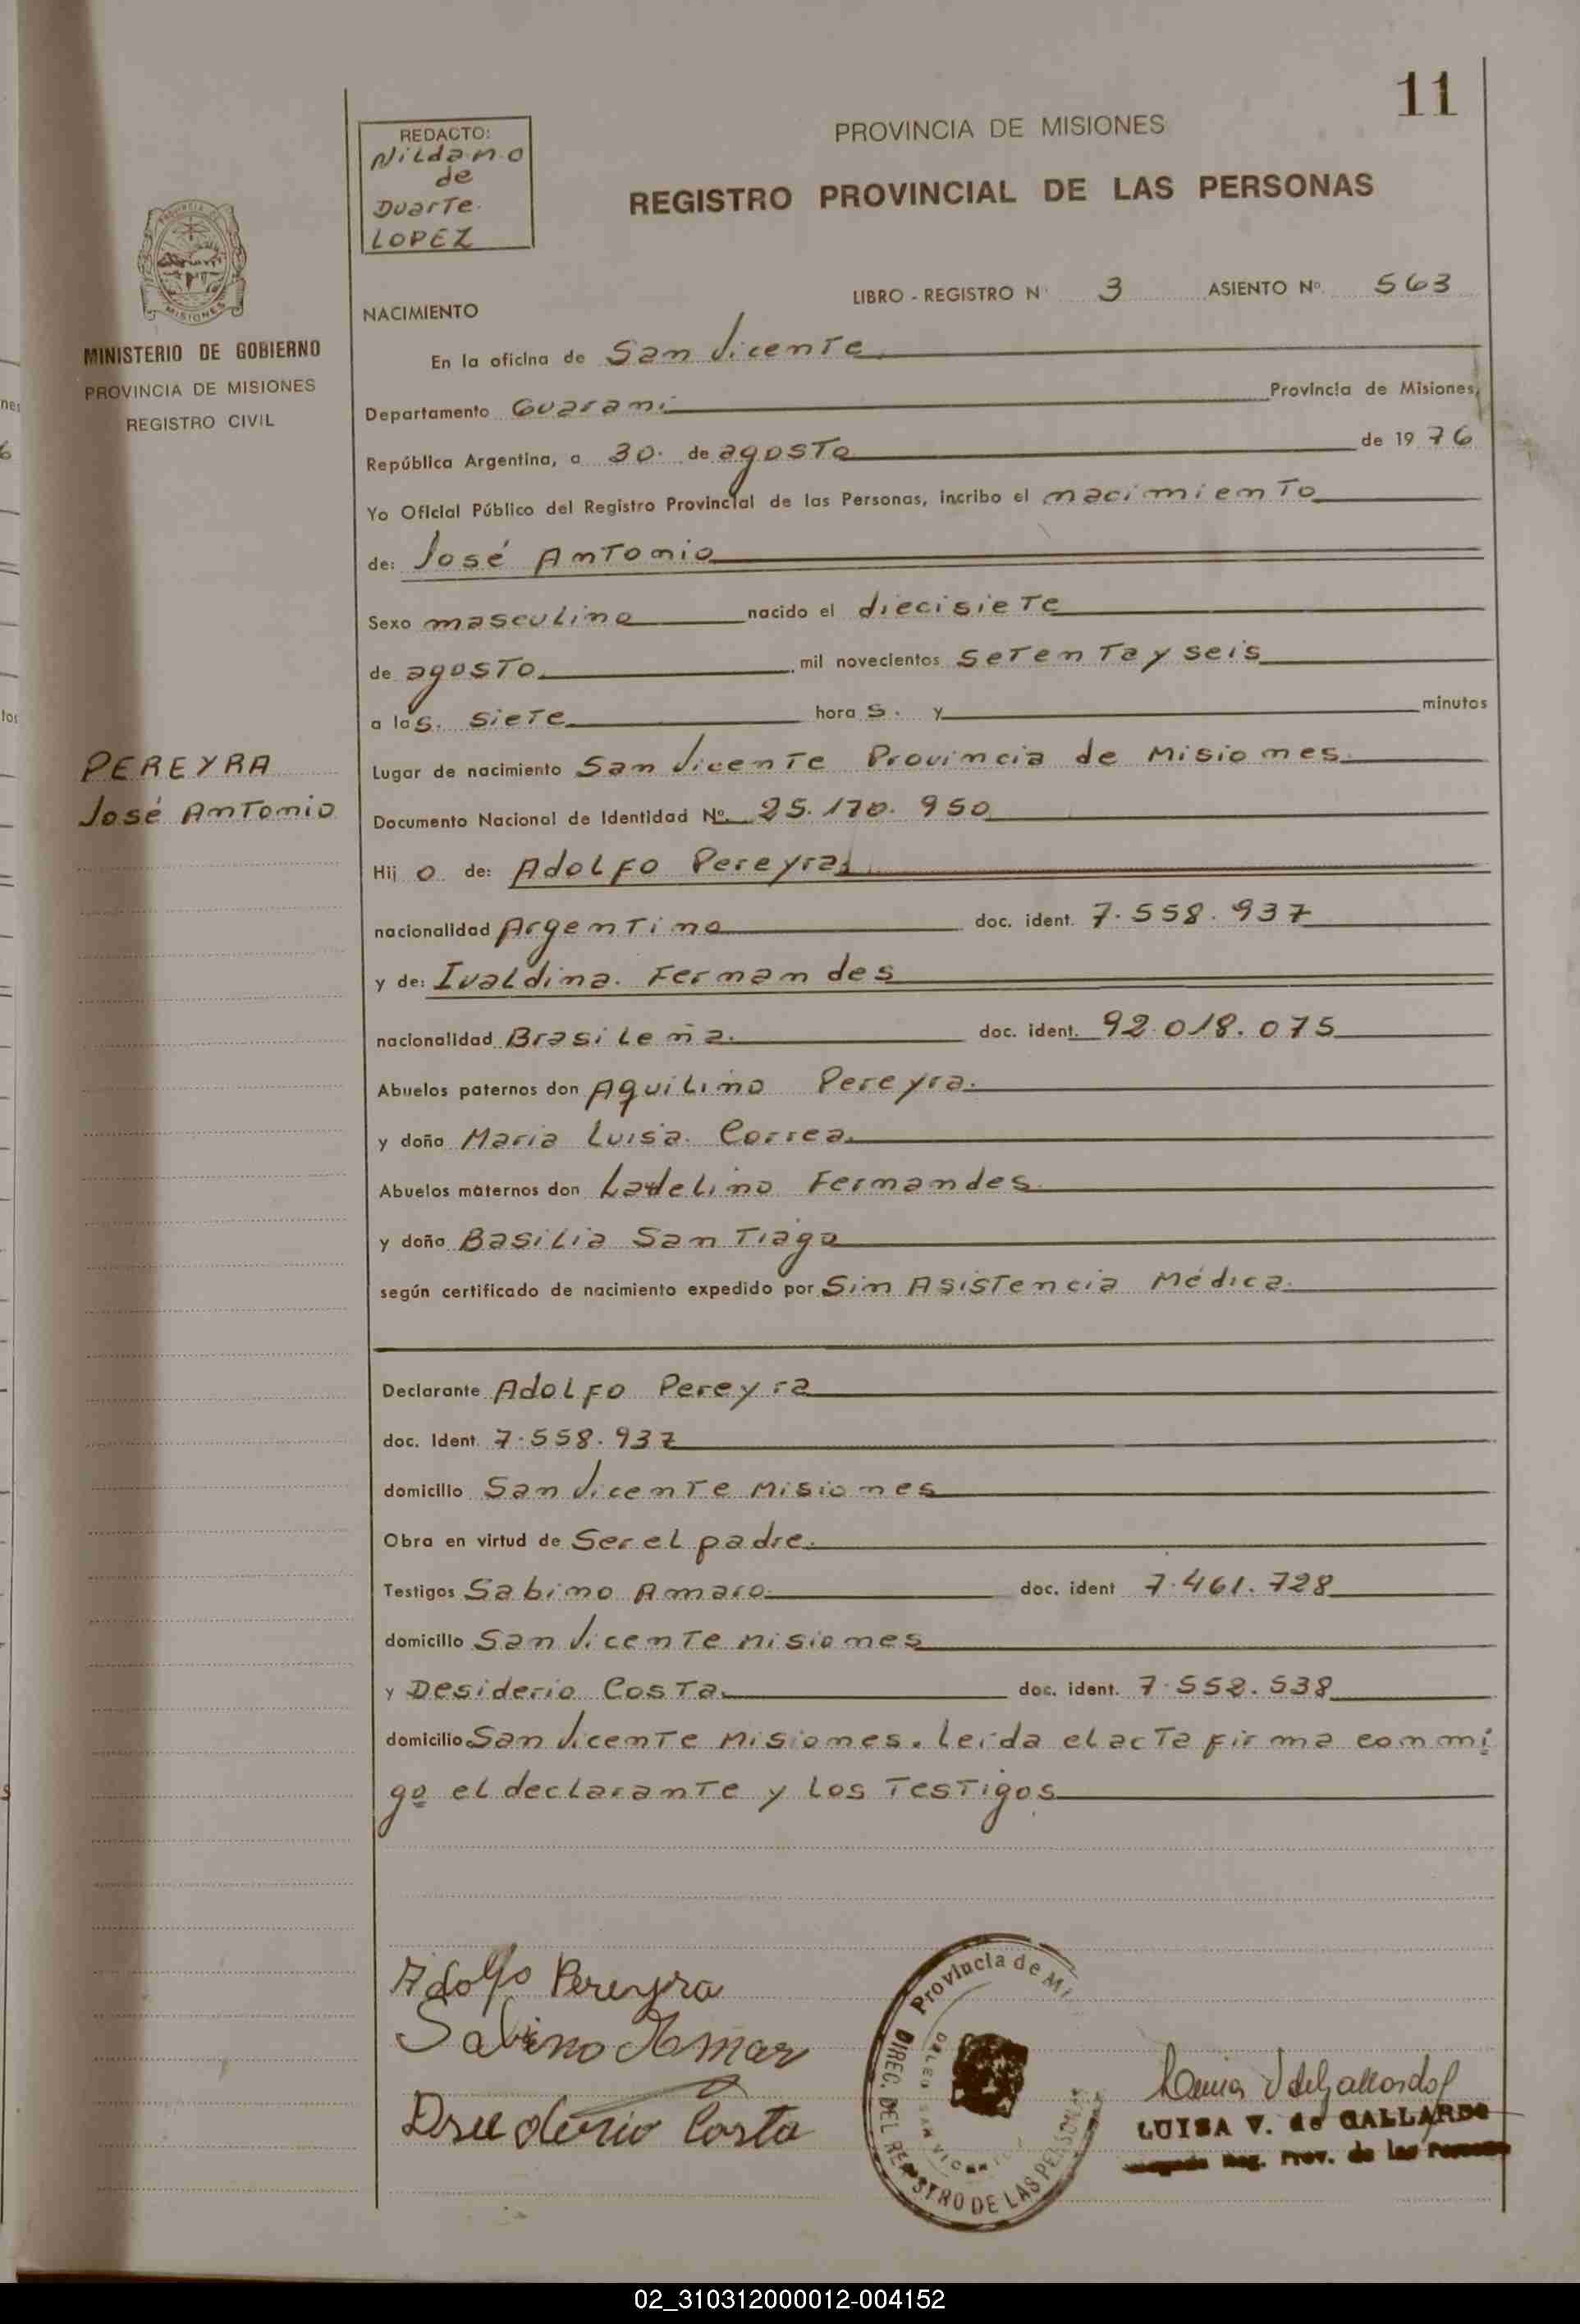 11
REDACTO:
Nilda m. o
de
Duarte
LOPEZ
PROVINCIA DE MISIONES
REGISTRO PROVINCIAL DE LAS PERSONAS
LIBRO - REGISTRO Nº 3 ASIENTO Nº 563
NACIMIENTO
MINISTERIO DE GOBIERNO
PROVINCIA DE MISIONES
REGISTRO CIVIL
En la oficina de San Vicente
Departamento Guarani Provincia de Misiones,
República Argentina, a 30 de agosto de 1976
Yo Oficial Público del Registro Provincial de las Personas, incribo el nacimiento
de: José Antonio
Sexo masculino nacido el diecisiete
de agosto mil novecientos setenta y seis
a las siete horas. y minutos
PEREYRA
José Antonio
Lugar de nacimiento San Vicente Provincia de Misiones
Documento Nacional de Identidad Nº 25.170.950
Hijo de: Adolfo Pereyra
nacionalidad Argentino doc. ident. 7.558.937
y de: Ivaldina Fernandes
nacionalidad Brasileña doc. ident. 92.018.075
Abuelos paternos don Aquilino Pereyra.
y doña Maria Luisa Correa
Abuelos maternos don Fernandes
y doña Basilia Santiago
según certificado de nacimiento expedido por Sin Asistencia Médica.
Declarante Adolfo Pereyra
doc. Ident. 7.558.937
domicilio San Vicente Misiones
Obra en virtud de Ser el padre.
Testigos Sabino Amaro doc. ident 7.461.728
domicilio San Vicente Misiones
y Desiderio Costa doc. ident. 7.558.538
domicilio San Vicente Misiones. leida el acta firma conmi
go el declarante y los testigos
Adolfo Pereyra
Sabino Amaro
Desiderio Costa
Provincia de Mi
DIREC. DEL REGISTRO DE LAS PERSONAS
DELEG SAN VICENTE
Luisa V de Gallardo
LUISA V. de GALLARDO
Reg. Prov. de las Personas
02_310312000012-004152